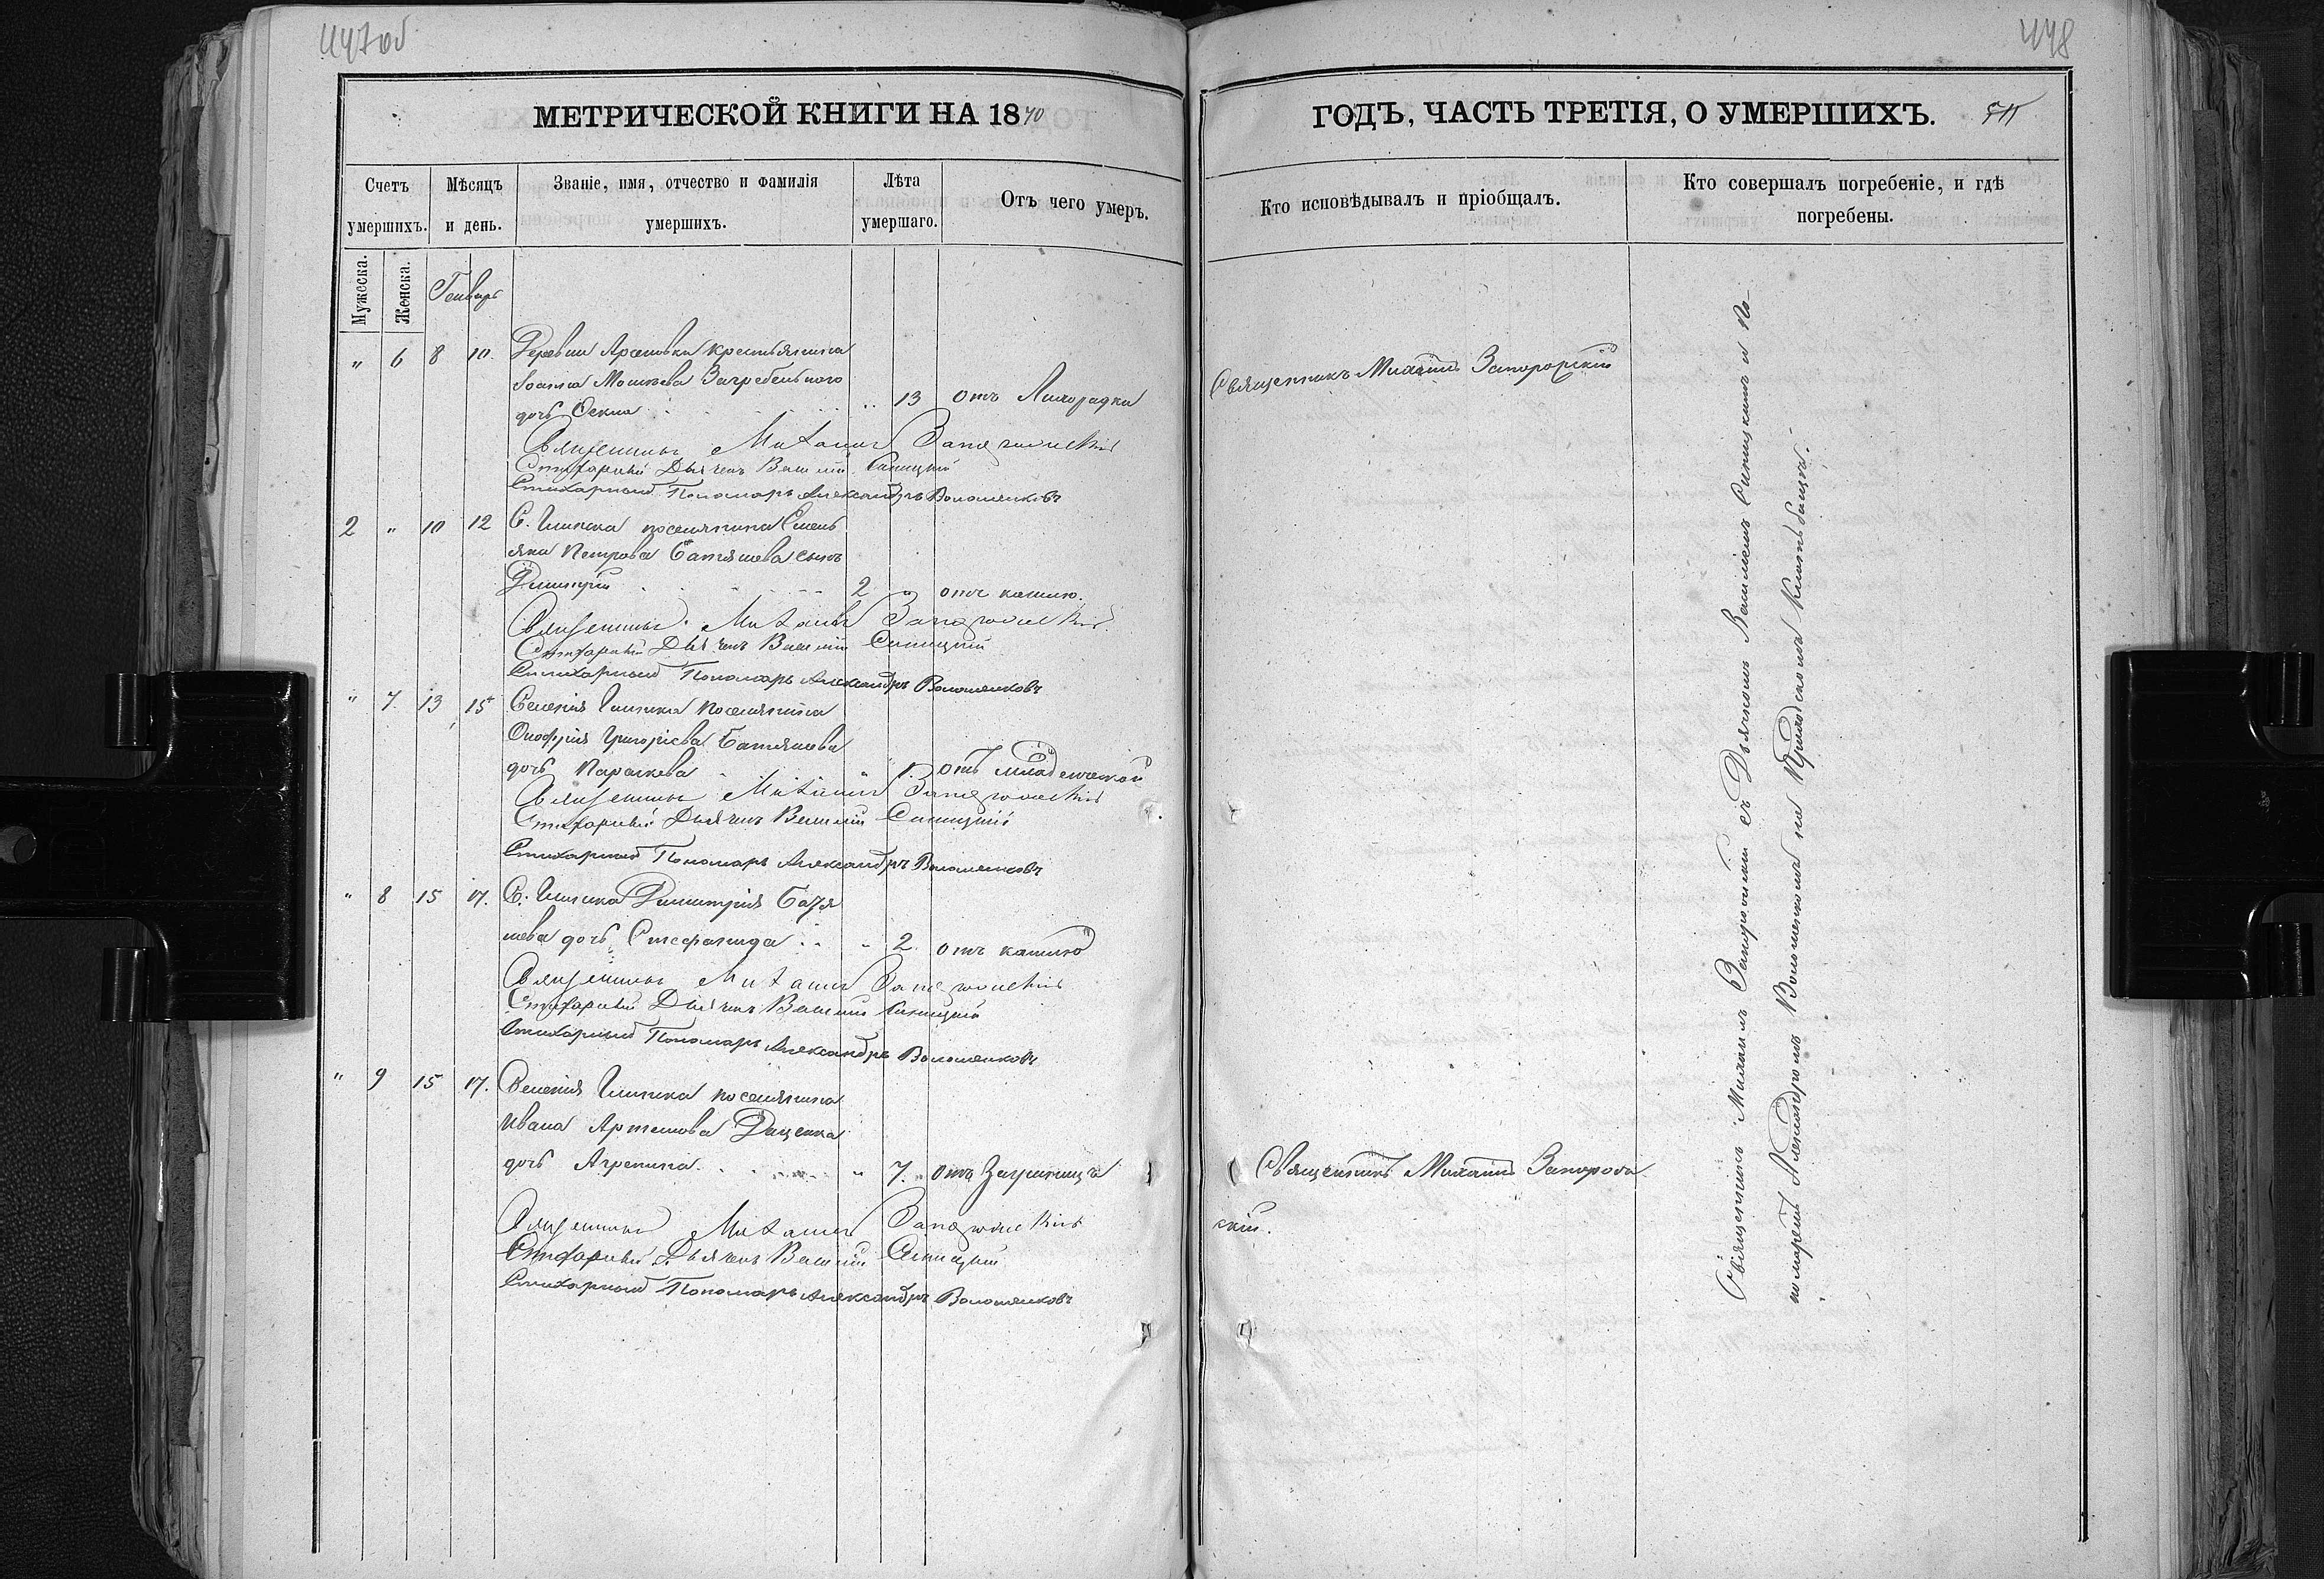 447об
448
МЕТРИЧЕСКОЙ КНИГИ НА 1870
ГОДЪ, ЧАСТЬ ТРЕТІЯ, О УМЕРШИХЪ.
Счетъ умершихъ.
Мѣсяцъ и день.
Званіе, имя, отчество и фамилія умершихъ.
Лѣта умершаго.
Отъ чего умеръ.
Кто исповѣдывалъ и пріобщалъ.
Кто совершалъ погребеніе, и гдѣ погребены.
Мужеска.
Женска.
Генварь
" 6 8 10. Деревни крестьянина
Загребельного
дочь 13 отъ Лихорадки
Священникъ Михаилъ Запорожскій
Священникъ Михаилъ Запорожскій
Стихарный Дьячекъ Василій Синицкій
Стихарный Пономарь Александръ Волошенковъ
2 " 10 12 С. поселянина Емель
яна Петрова сынъ
Димитрій 2 " отъ кашлю.
Священникъ Михаилъ Запорожскій
Стихарный Дьячекъ Василій Синицкій
Стихарный Пономарь Александръ Волошенковъ
" 7. 13 15 Селенія поселянина
Онофрія Григорієва
дочь Параскева 1. отъ младенческой
Священникъ Михаилъ Запорожскій
Стихарный Дьячекъ Василій Синицкій
Стихарный Пономарь Александръ Волошенковъ
" 8 15 17. С. Димитрія
шева дочь Стефанида " 2. отъ кашлю
Священникъ Михаилъ Запорожскій
Стихарный Дьячекъ Василій Синицкій
Стихарный Пономарь Александръ Волошенковъ
" 9 15 17. Селенія поселянина
Ивана Артемова Даценка
дочь Агрепина " 7. отъ
Священникъ Михаилъ Запорож
скій.
Священникъ Михаилъ Запорожскій
Стихарный Дьячекъ Василій Синицкій
Стихарный Пономарь Александръ Волошенковъ
Священникъ Михаилъ Запорожскій съ Дьячкомъ Василіемъ Синицкимъ и По-
номаремъ Александромъ Волошенкомъ на Приходскомъ Кладбищѣ.